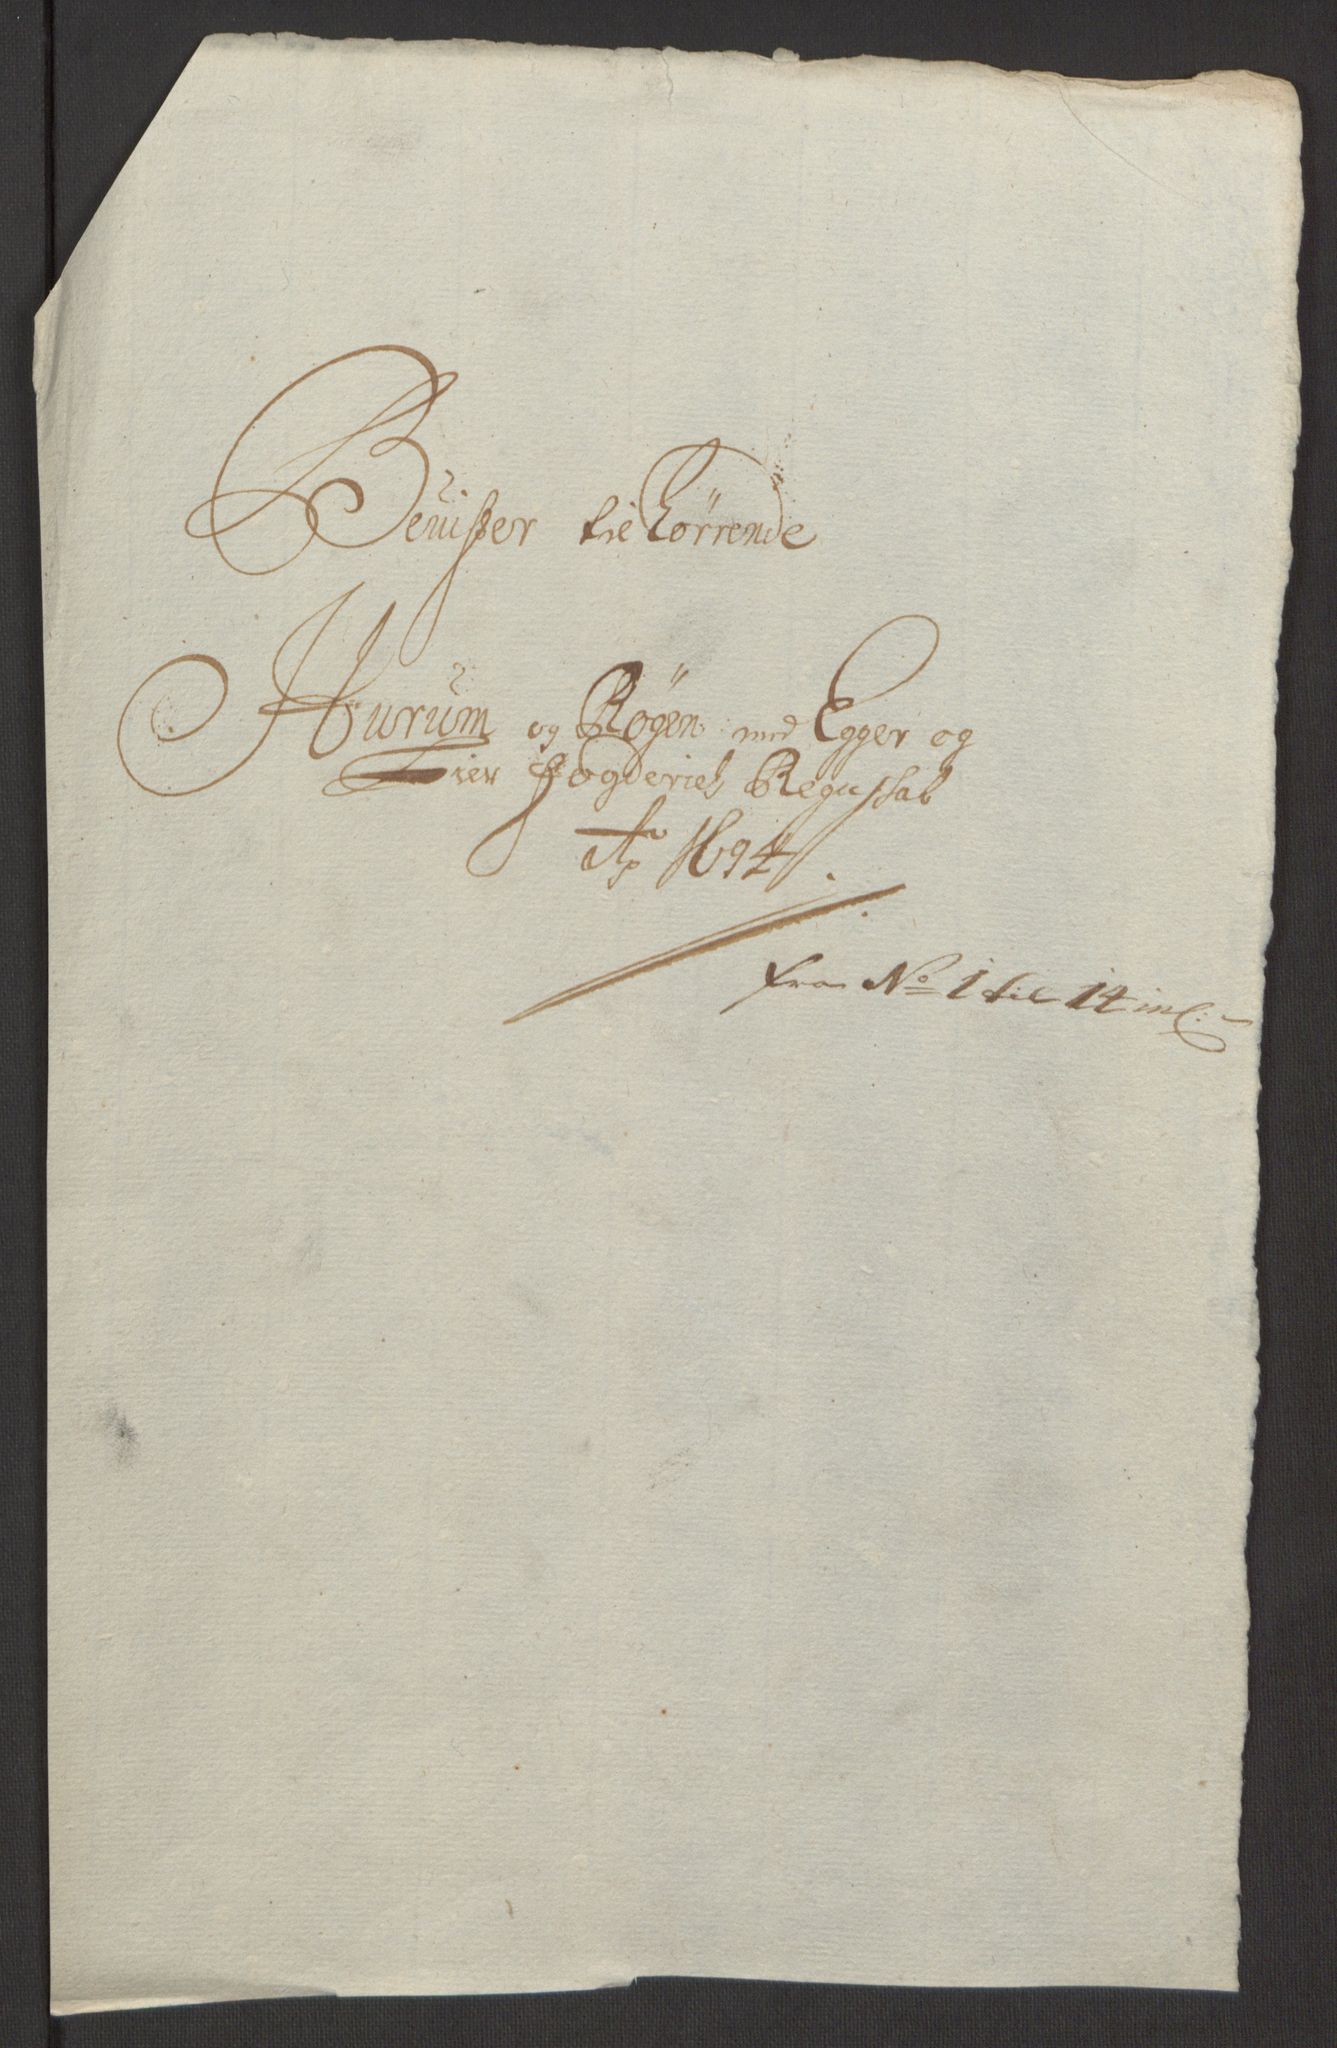 Beuißer til hörrende
Hurum og Rögen med Egger og
Lier Fogderies Regnschab
Ao 1694.
fra No 1 til 14 incl: